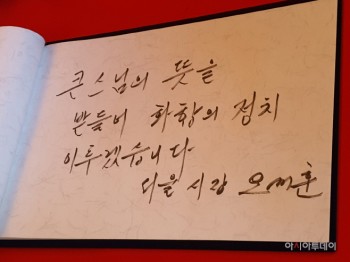 큰스님의 뜻을
받들어 화합의 정치
이루겠습니다
서울시장 오세훈
아시아투데이